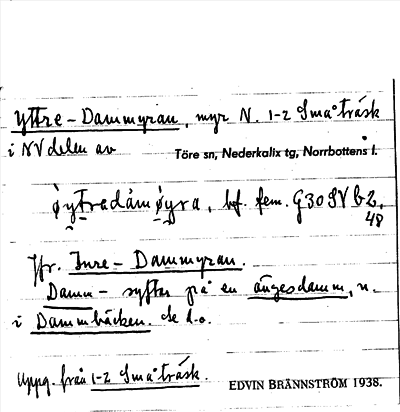 Yttre-Dammyran, myr N. 1-2 Småträsk
i NV delen av
Töre sn, Nederkalix tg, Norrbottens l.
bf. fem. G30SV b2.
48
Jfr. Inre-Dammyran.
Damm- syftar på en ängesdamm, n.
i Dammbäcken. Se d.o.
Uppg. från 1-2 Småträsk.
EDVIN BRÄNNSTRÖM 1938.